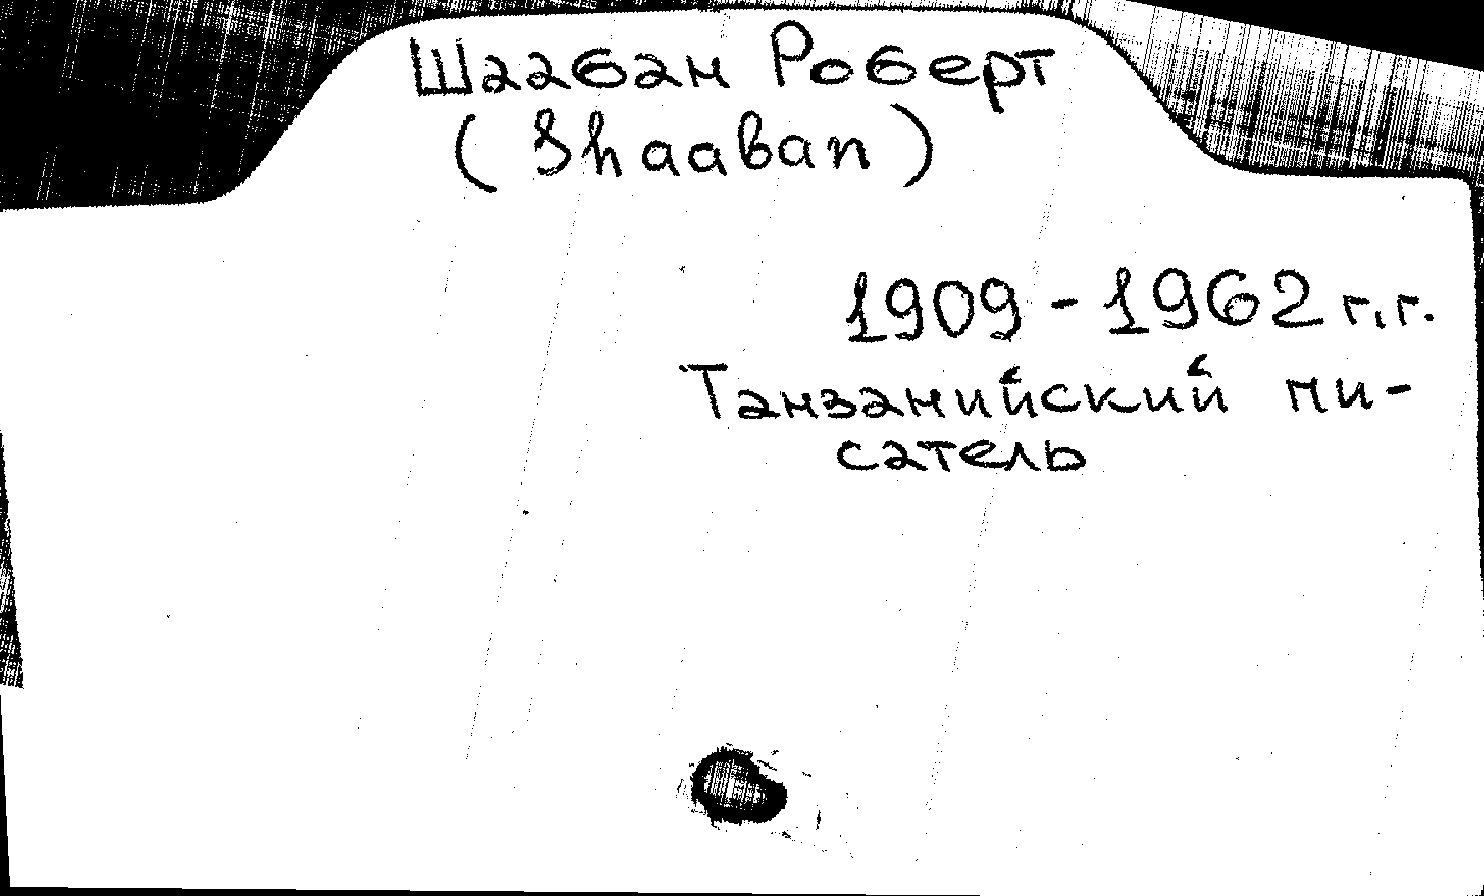 Шаабан Роберт
( Shaaban )
1909 - 1962 г.г.
Танзанийский пи-
сатель